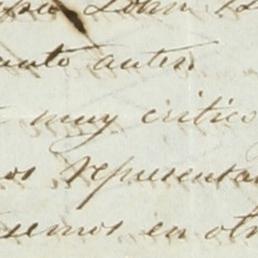 Loan
anto antes.
muy critico
os representa
semos en otr